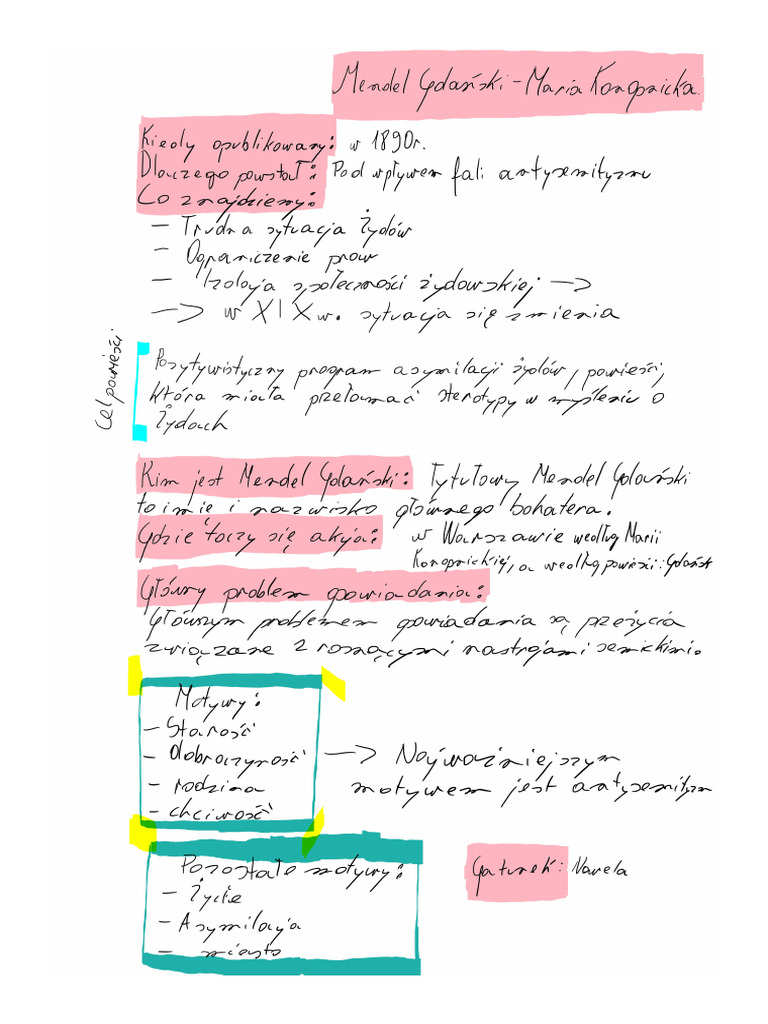 Mendel Gdański - Maria Konopnicka.
Kiedy opublikowany: w 1890r.
Dlaczego powstał: Pod wpływem fali antysemityzmu
Co znajdziemy:
- Trudna sytuacja Żydów
- Ograniczenie praw
- Izolacja społeczności żydowskiej ->
-> w XIX w. sytuacja się zmienia
Cel powieści
Pozytywistyczny program asymilacji żydów, powieści,
która miała przełamać sterotypy w myśleniu o
Żydach
Kim jest Mendel Gdański: Tytułowy Mendel Gdański
to imię i nazwisko głównego bohatera.
Gdzie toczy się akcja: w Warszawie według Marii
Konopnickiej, a według powieści: Gdańsk
Główny problem opowiadania:
Głównym problemem opowiadania są przeżycia
związane z rosnącymi nastrojami semickimi.
Motywy:
- Starość
- dobroczynność
- rodzina
- chciwość
-> Najważniejszym
motywem jest antysemityzm
Pozostałe motywy:
- Życie
- Asymilacja
- miasto
Gatunek: Nowela